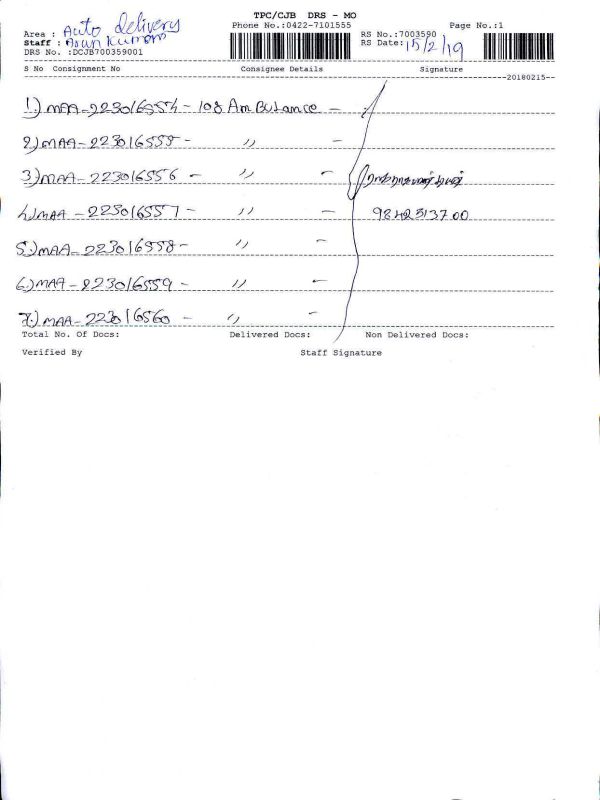 TPC/CJB DRS - MO
Area : Auto delivery Phone No.:0422-7101555 Page No.:1
Staff : Arun Kumar RS No.:7003590
DRS No. :DCJB700359001 RS Date: 15/2/19
S No Consignment No Consignee Details Signature
20180215
1.) MAA-223016554 - 108 AmBulance -
2.) MAA-223016555 - ,, -
3.) MAA-223016556 - ,, -
4.) MAA-223016557 - ,, - 9842513700
5.) MAA-223016558 - ,, -
6.) MAA-223016559 - ,, -
7.) MAA-223016560 - ,, -
Total No. Of Docs: Delivered Docs: Non Delivered Docs:
Verified By Staff Signature